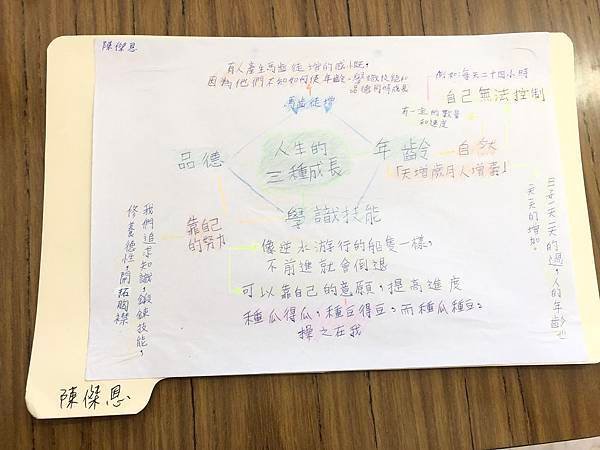 陳傑恩
有人產生馬齒徒增的感慨,
因為他們不知如何使年齡、學識技能和
品德同時成長
馬齒徒增
例如:每天二十四小時
自己無法控制
有一定的數量
和速度
品德
人生的
三種成長
年齡
自然
「天增歲月人增壽」
學識技能
靠自己
的努力
像逆水游行的船隻一樣,
不前進就會倒退
可以靠自己的意願,提高進度
種瓜得瓜,種豆得豆,而種瓜種豆,
操之在我
我們追求知識,鍛鍊技能,
修養德性,開拓胸襟
日子一天一天的過,人的年齡也
一天一天的增加。
陳傑恩